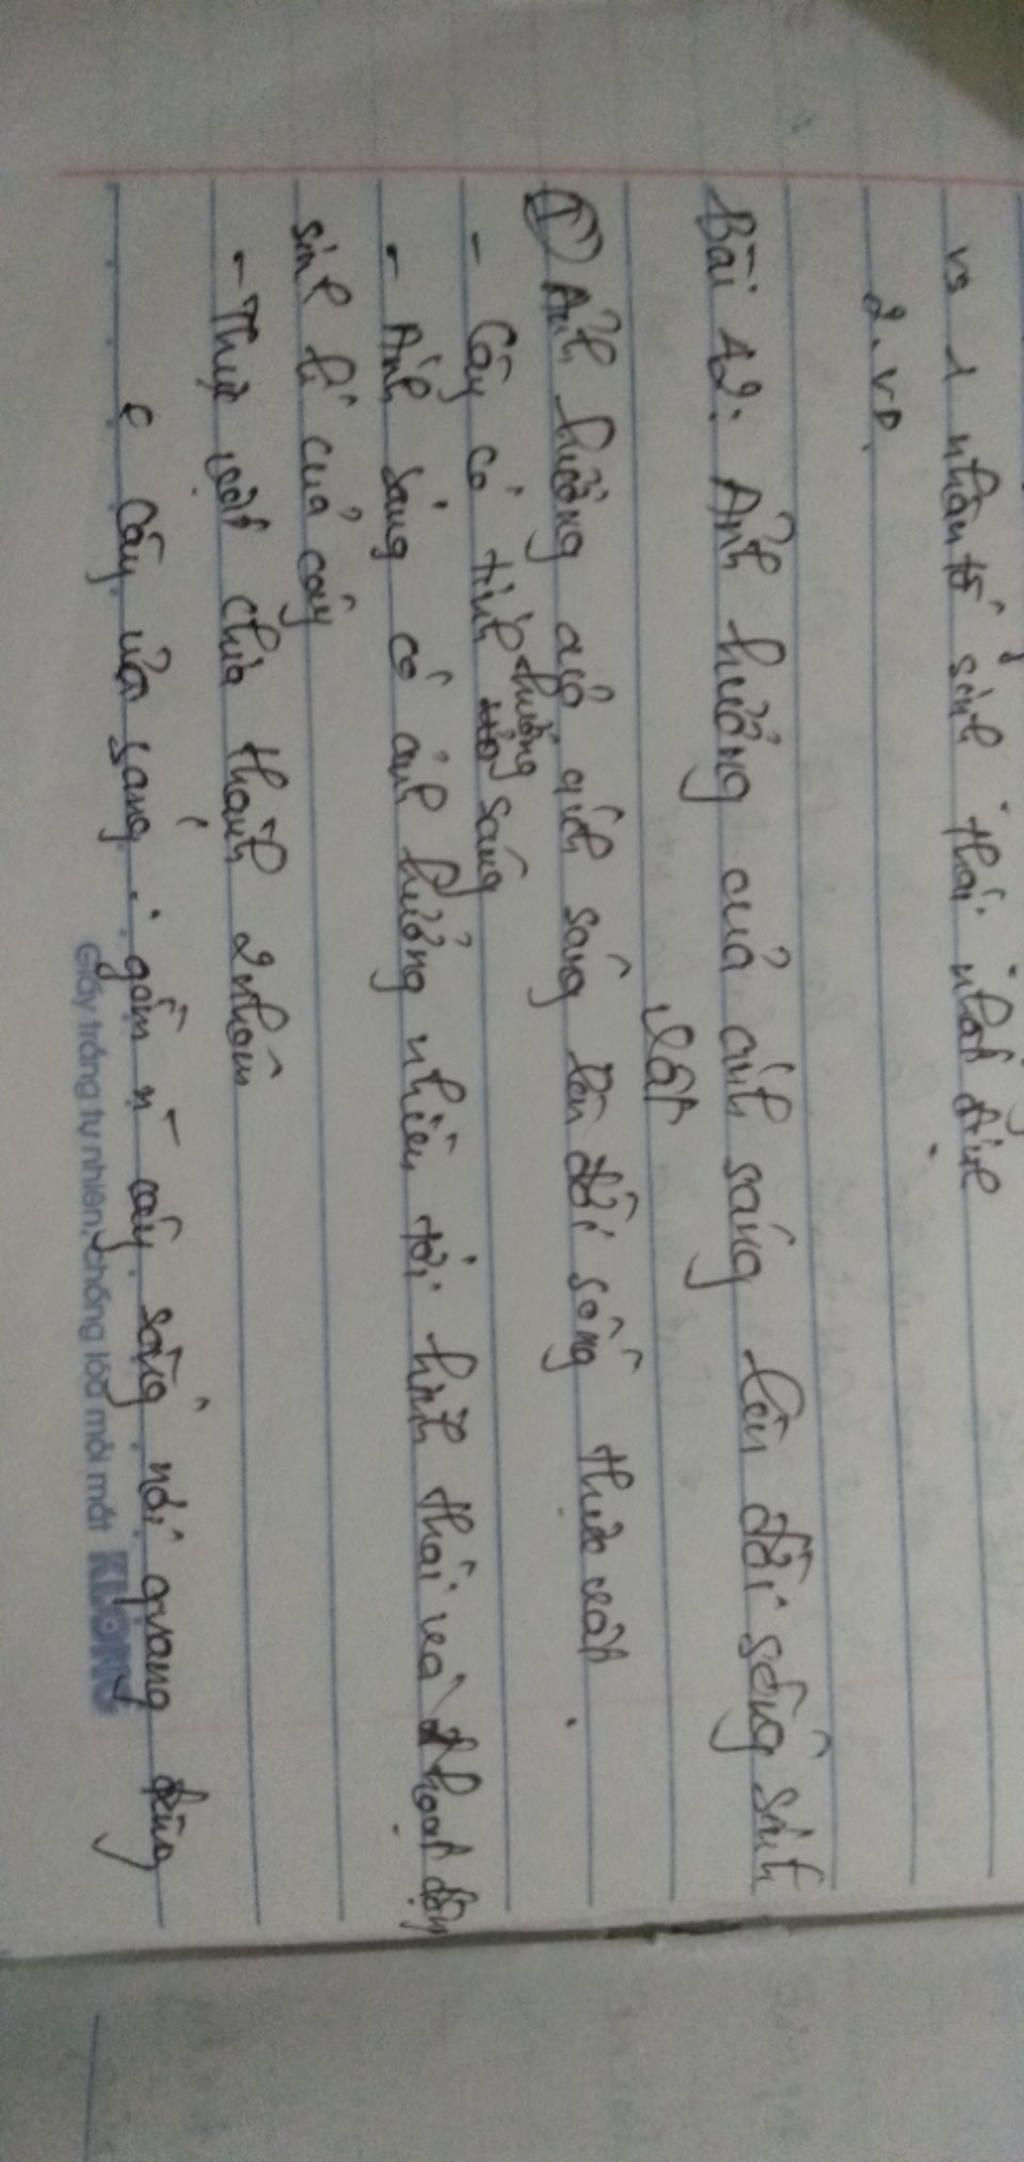 vs 1 nhân tố sinh thái nhất định
2. VD
Bài 42: Ảnh hưởng của ánh sáng lên đời sống sinh
vật
① Ảnh hưởng ánh sáng lên đời sống thực vật
- Cây có tính hướng sáng
- Ánh sáng có ảnh hưởng nhiều tới hình thái và hoạt động
sinh lí của cây
- Thực vật chia thành 2 nhóm
Cây ưa sáng: gồm n~ cây sống nơi quang đãng
Giấy trắng tự nhiên, chống lóa mỏi mắt KLONG